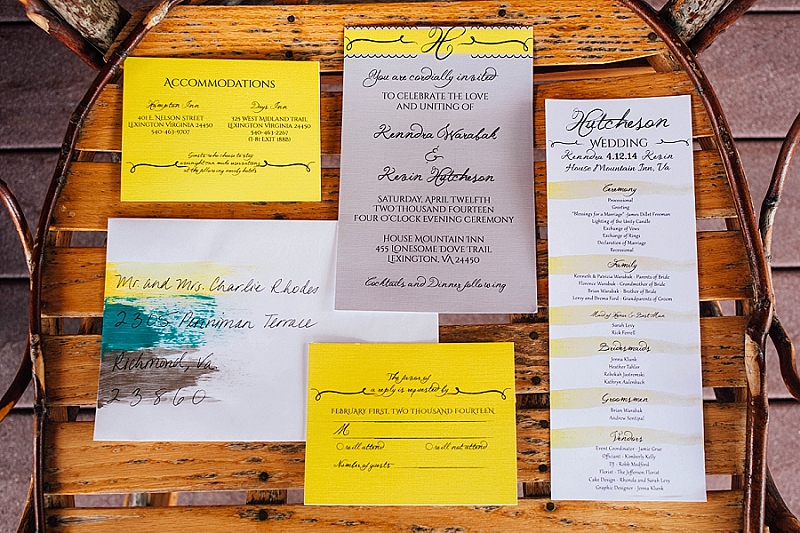 Accommodations
Hampton Inn
401 E. Nelson Street
Lexington Virginia 24450
540-463-9707
Days Inn
325 West Midland Trail
Lexington Virginia 24450
540-461-2267
Guests who choose to stay
overnight can make reservations
at the following nearby hotels
H
You are cordially invited
to celebrate the love
and uniting of
Kenndra Warabak
&
Kevin Hutcheson
Saturday, April Twelfth
Two Thousand Fourteen
Four O'Clock Evening Ceremony
House Mountain Inn
455 Lonesome Dove Trail
Lexington, VA 24450
Cocktails and Dinner following
Hutcheson
Wedding
Kenndra 4.12.14 Kevin
House Mountain Inn, Va
Ceremony
Processional
Greeting
"Blessings for a Marriage" -James Dillet Freeman
Lighting of the Unity Candle
Exchange of Vows
Exchange of Rings
Declaration of Marriage
Recessional
Family
Kenneth & Patricia Warabak - Parents of Bride
Florence Warabak - Grandmother of Bride
Brian Warabak - Brother of Bride
Leroy and Drema Ford - Grandparents of Groom
Maid of Honor & Best Man
Sarah Levy
Rick Ferrell
Bridesmaids
Jenna Klunk
Heather Tahler
Rebekah Justremski
Kathryn Aulenbach
Groomsmen
Brian Warabak
Andrew Sentipal
Vendors
Event Coordinator - Jamie Grue
Officiant - Kimberly Kelly
DJ - Robb Medford
Florist - The Jefferson Florist
Cake Design - Rhonda and Sarah Levy
Graphic Designer - Jenna Klunk
Mr. and Mrs. Charlie Rhodes
2305 Penniman Terrace
Richmond, Va.
23860
The favor of
a reply is requested by
February First, Two Thousand Fourteen
M
will attend
will not attend
Number of guests